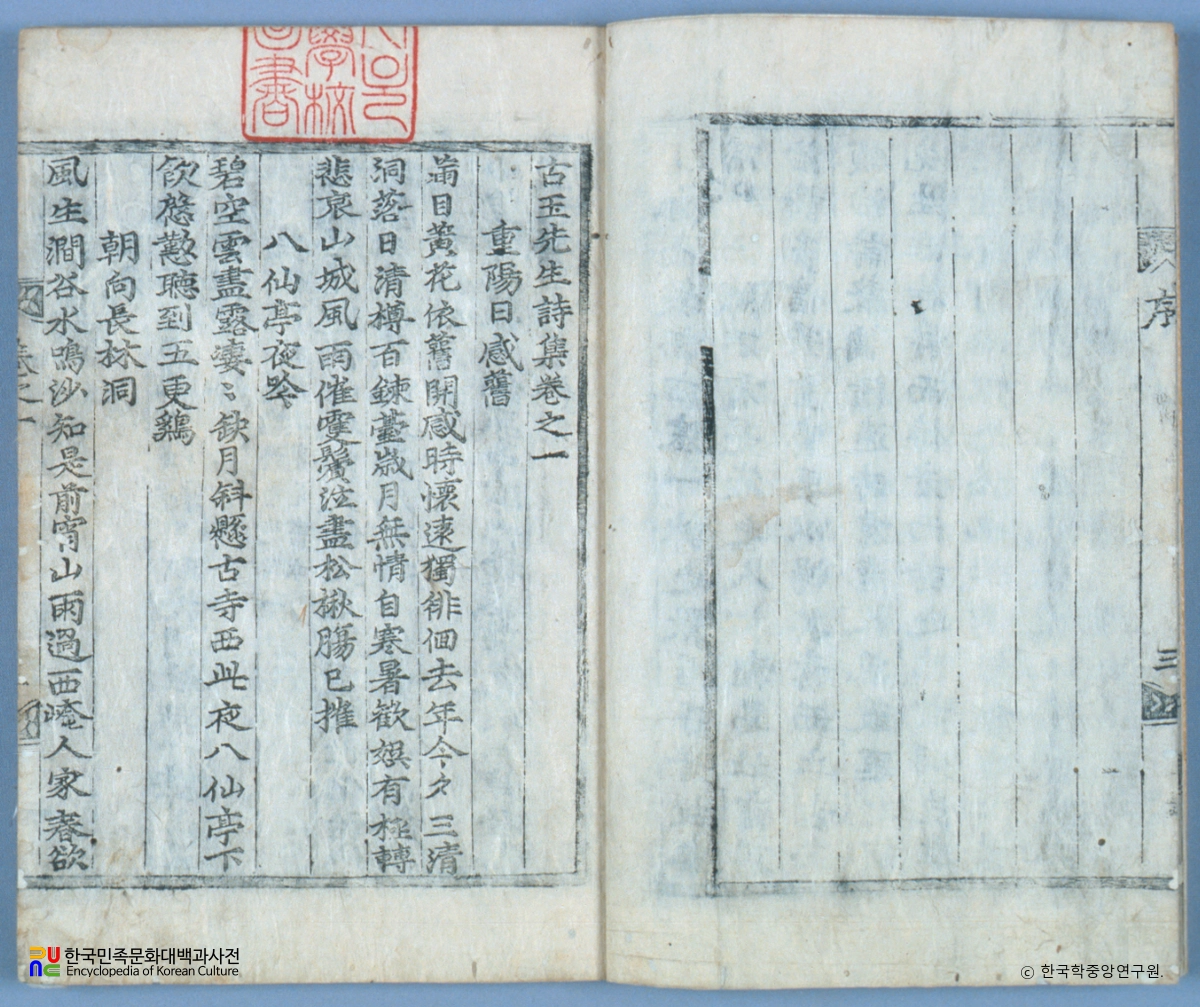 序
三
古玉先生詩集卷之一
重陽日感舊
滿目黃花依舊開感時懷遠獨徘徊去年今夕三淸
洞落日清樽百鍊臺歲月無情自寒暑歡娛有極轉
悲哀山城風雨催雙鬢泣盡松楸膓已摧
八仙亭夜吟
碧空雲盡露凄〻缺月斜懸古寺西此夜八仙亭下
飮慇懃聽到五更鷄
朝向長林洞
風生澗谷水鳴沙知是前宵山雨過西崦人家春欲
卷之一
한국민족문화대백과사전
Encyclopedia of Korean Culture
© 한국학중앙연구원.